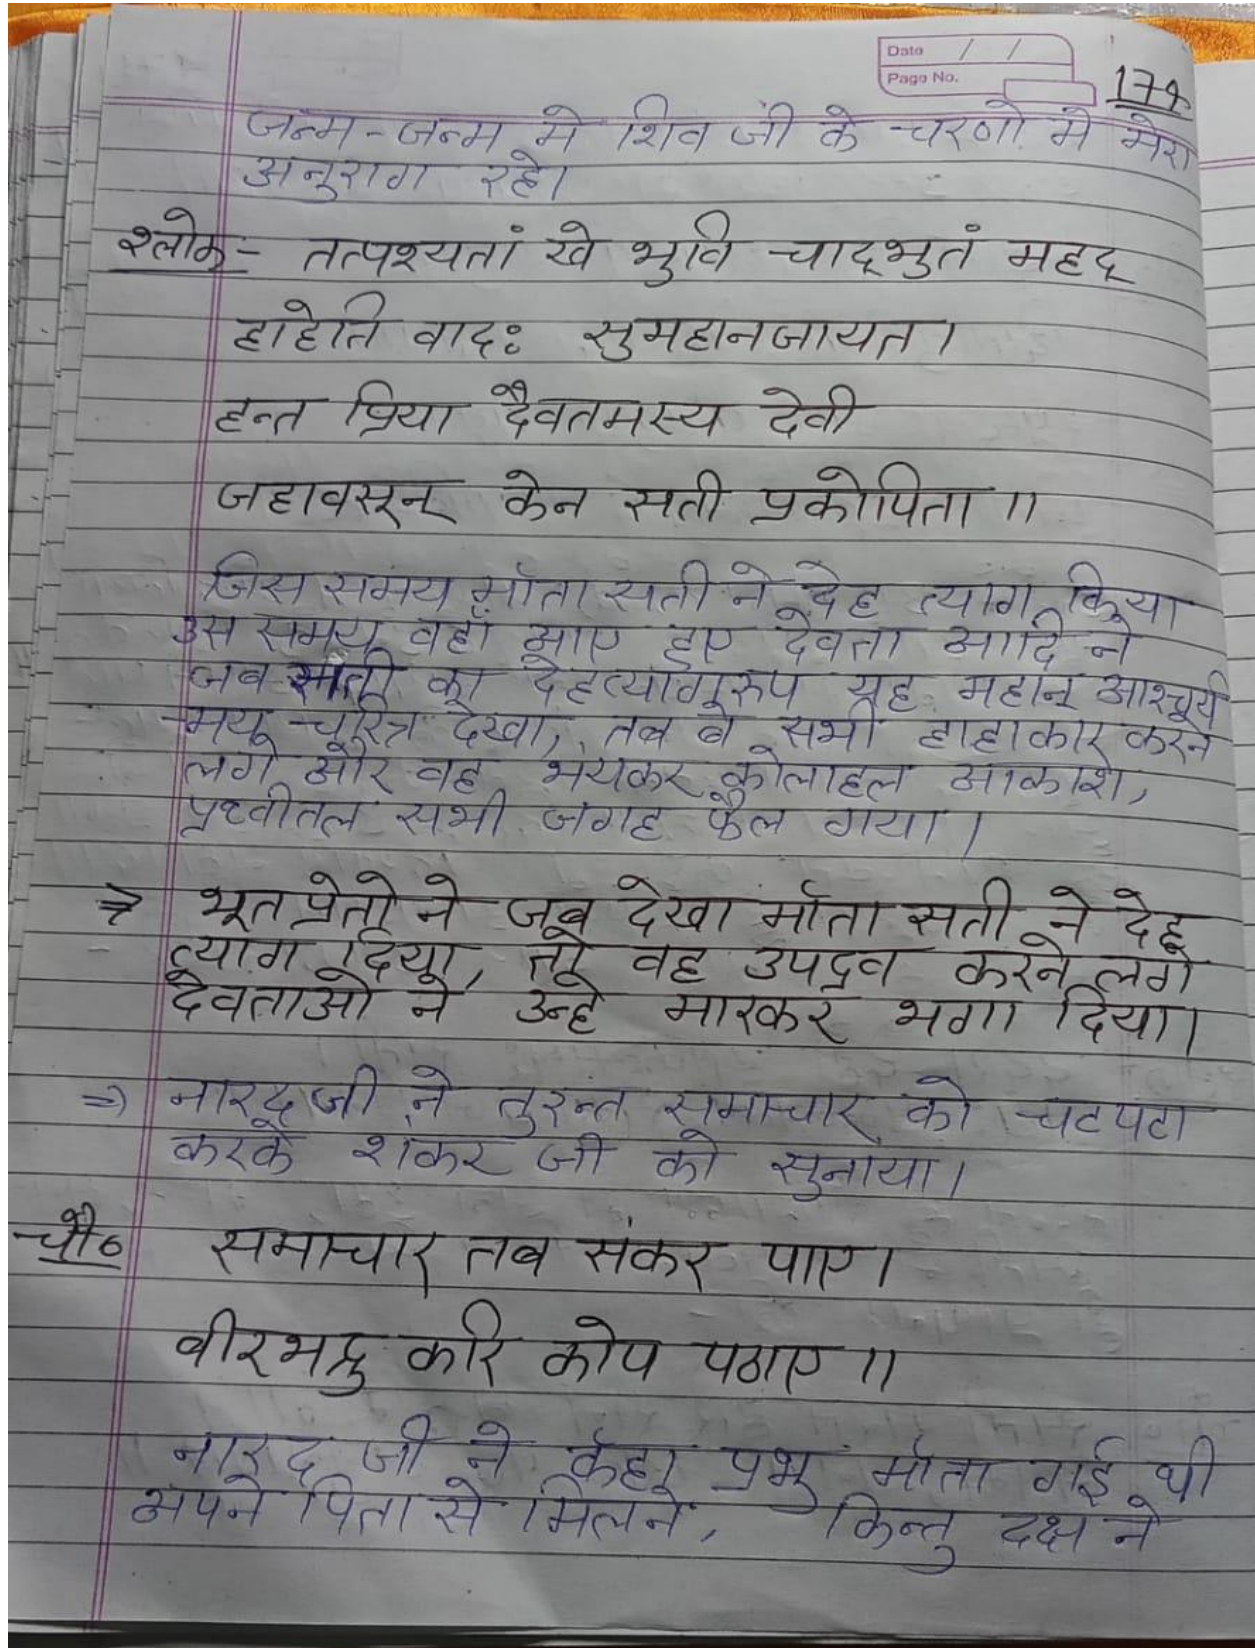 Date / /
Page No.
174
जन्म-जन्म मे शिव जी के चरणो मे मेरा
अनुराग रहे।
श्लोक- तत्पश्यतां खे भुवि चाद्भुतं महद्
हाहेति वादः सुमहानजायत।
हन्त प्रिया दैवतमस्य देवी
जहावसून् केन सती प्रकोपिता ॥
जिस समय मॉता सती ने देह त्याग किया
उस समय वहाँ आए हुए देवता आदि ने
जब सती का देहत्यागरुप यह महान् आश्चर्य
मय चरित्र देखा, तब वे सभी हाहाकार करने
लगे और वह भयंकर कोलाहल आकाश,
प्रथ्वीतल सभी जगह फैल गया।
⇒ भूत प्रेतो ने जब देखा मॉता सती ने देह
त्याग दिया, तो वह उपद्रव करने लगे
देवताओ ने उन्हे मारकर भगा दिया।
⇒ नारद जी ने तुरन्त समाचार को चटपटा
करके शंकर जी को सुनाया।
चौ० समाचार तब संकर पाए।
वीरभद्रु करि कोप पठाए॥
नारद जी ने कहा प्रभु मॉता गई थी
अपने पिता से मिलने, किन्तु दक्ष ने